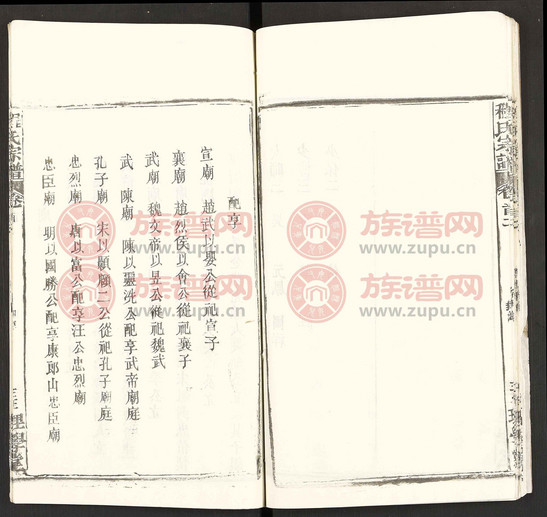 程氏宗譜 卷首二
配享
宣廟 趙武以嬰公從祀宣子
襄廟 趙烈侯以會公從祀襄子
武廟 魏文帝以昱公從祀魏武
武帝廟 陳以靈洗公配享武帝廟庭
孔子廟 宋以顥頤二公從祀孔子廟庭
忠烈廟 唐以富公配享汪公忠烈廟
忠臣廟 明以國勝公配享康郎山忠臣廟
程氏宗譜 卷首
理學堂
族谱网
www.zupu.cn
族谱网
www.zupu.cn
族谱网
www.zupu.cn
族谱网
www.zupu.cn